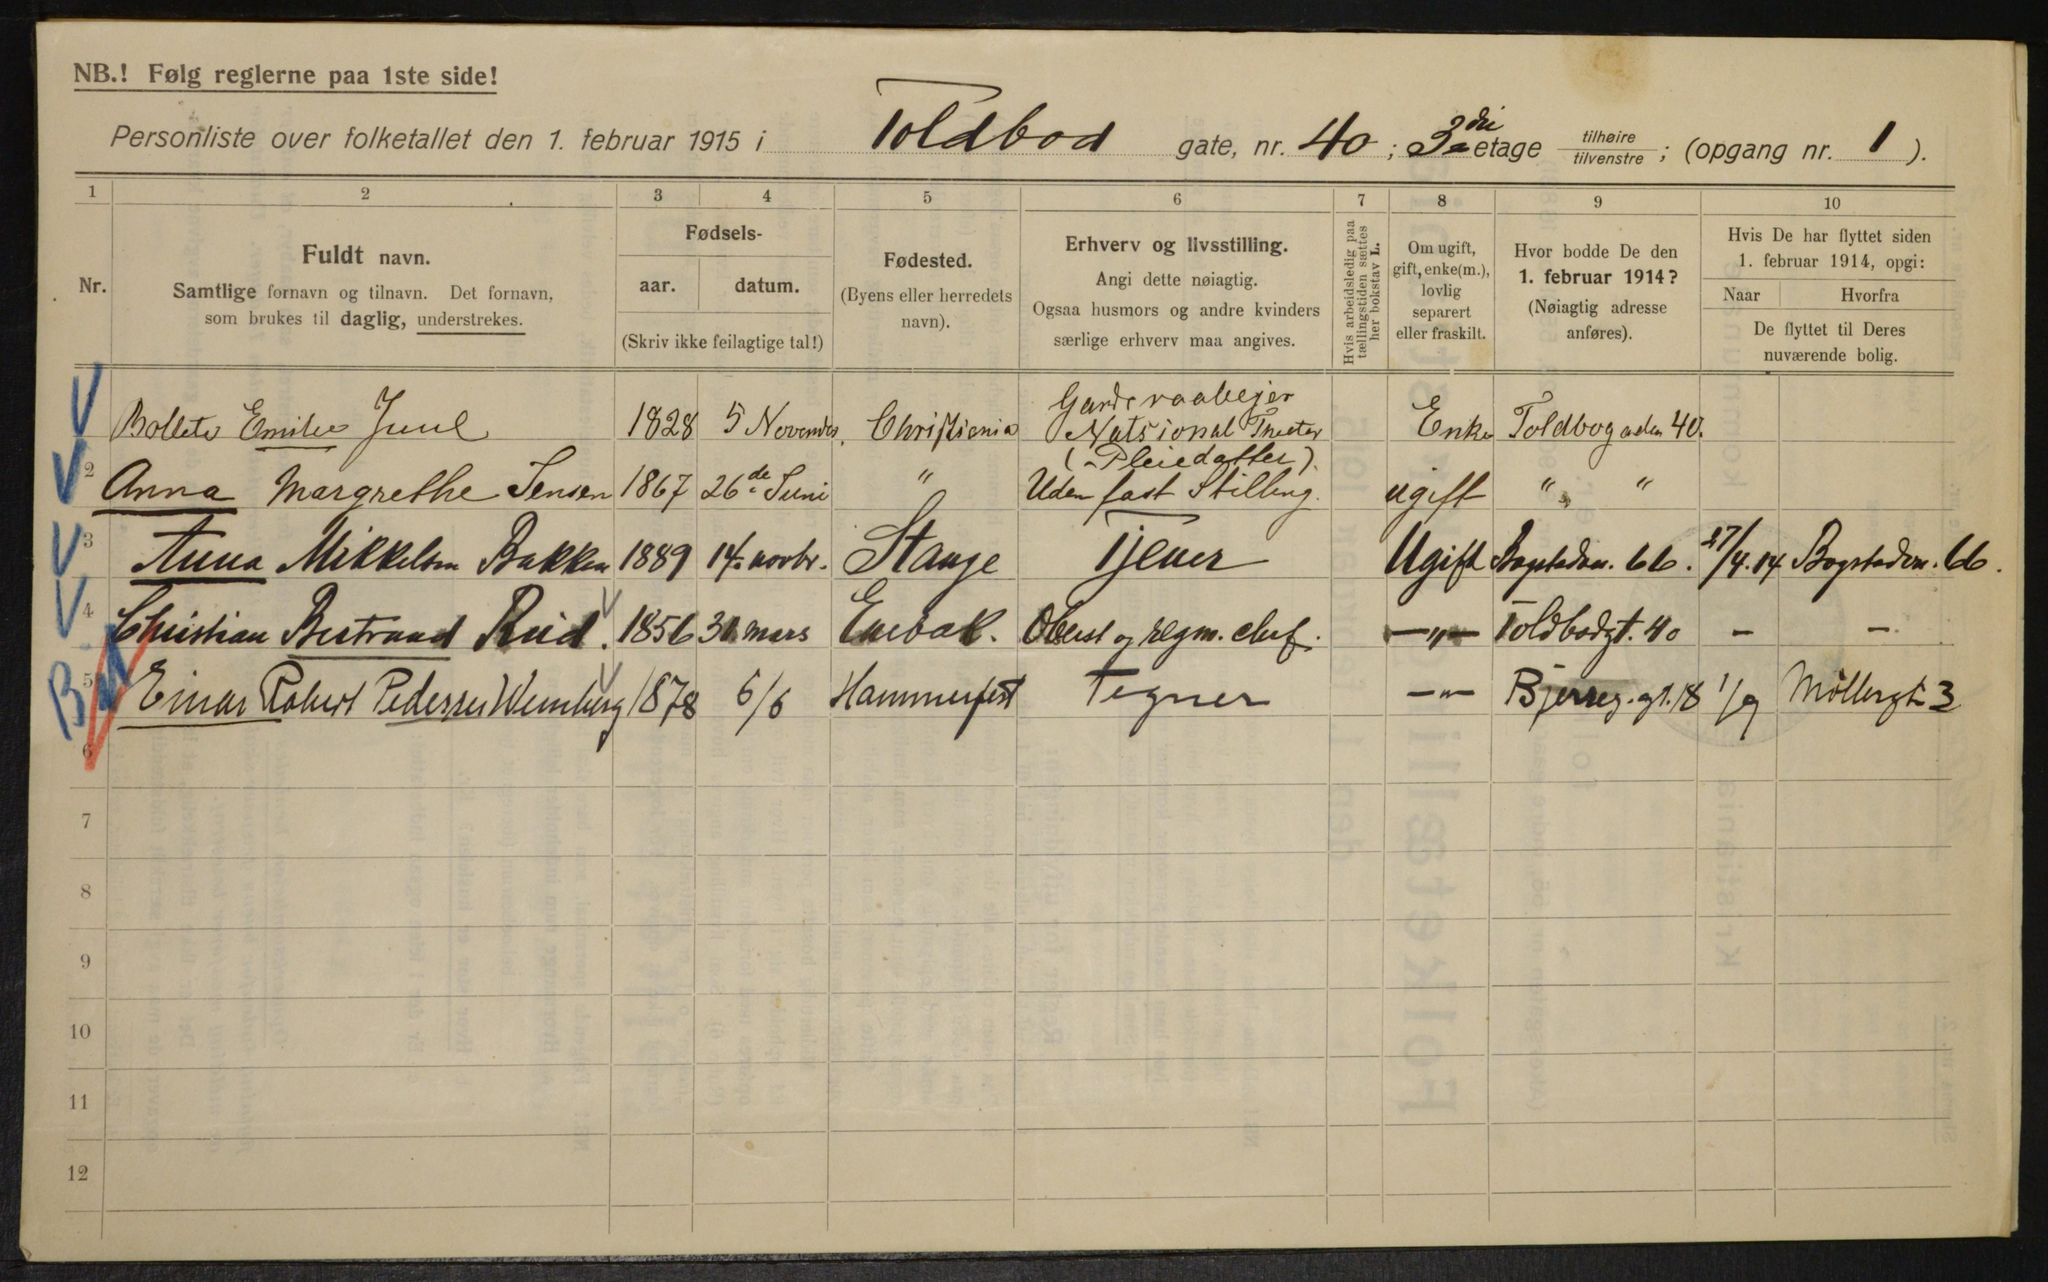 NB.! Følg reglerne paa 1ste side!
Personliste over folketallet den 1. februar 1915 i Toldbod gate, nr. 40; 3die etage tilhøire / tilvenstre; (opgang nr. 1).
1 2 3 4 5 6 7 8 9 10
Nr.
Fuldt navn.
Samtlige fornavn og tilnavn. Det fornavn,
som brukes til daglig, understrekes.
Fødsels-
aar. datum.
(Skriv ikke feilagtige tal!)
Fødested.
(Byens eller herredets
navn).
Erhverv og livsstilling.
Angi dette nøiagtig.
Ogsaa husmors og andre kvinders
særlige erhverv maa angives.
Hvis arbeidsledig paa
tællingstiden sættes
her bokstav L.
Om ugift,
gift, enke(m.),
lovlig
separert
eller fraskilt.
Hvor bodde De den
1. februar 1914?
(Nøiagtig adresse
anføres).
Hvis De har flyttet siden
1. februar 1914, opgi:
Naar Hvorfra
De flyttet til Deres
nuværende bolig.
Bollete Emilie Juul 1828 5 Novembr. Christiania Garderaabeejer Natsional Theater Enke Toldbogaden 40.
2 Anna Margrethe Jensen 1867 26de Juni " (Pleiedatter). Uden fast Stilling. ugift " "
3 Anna Mikkelsen Bakken 1889 14. novbr. Stange Tjener Ugift Bogstadvn. 66. 27/4.14 Bogstadvn. 66.
4 Christian Bertrand Reid. 1856 31. mars Enebak. Oberst og regm. chef. —"— Toldbodgt. 40 — —
5 Einar Robert Pedersen Wemberg 1878 6/6 Hammerfest Tegner —"— Bjerreg. gt. 18 1/9 Møllergt 3
6
7
8
9
10
11
12